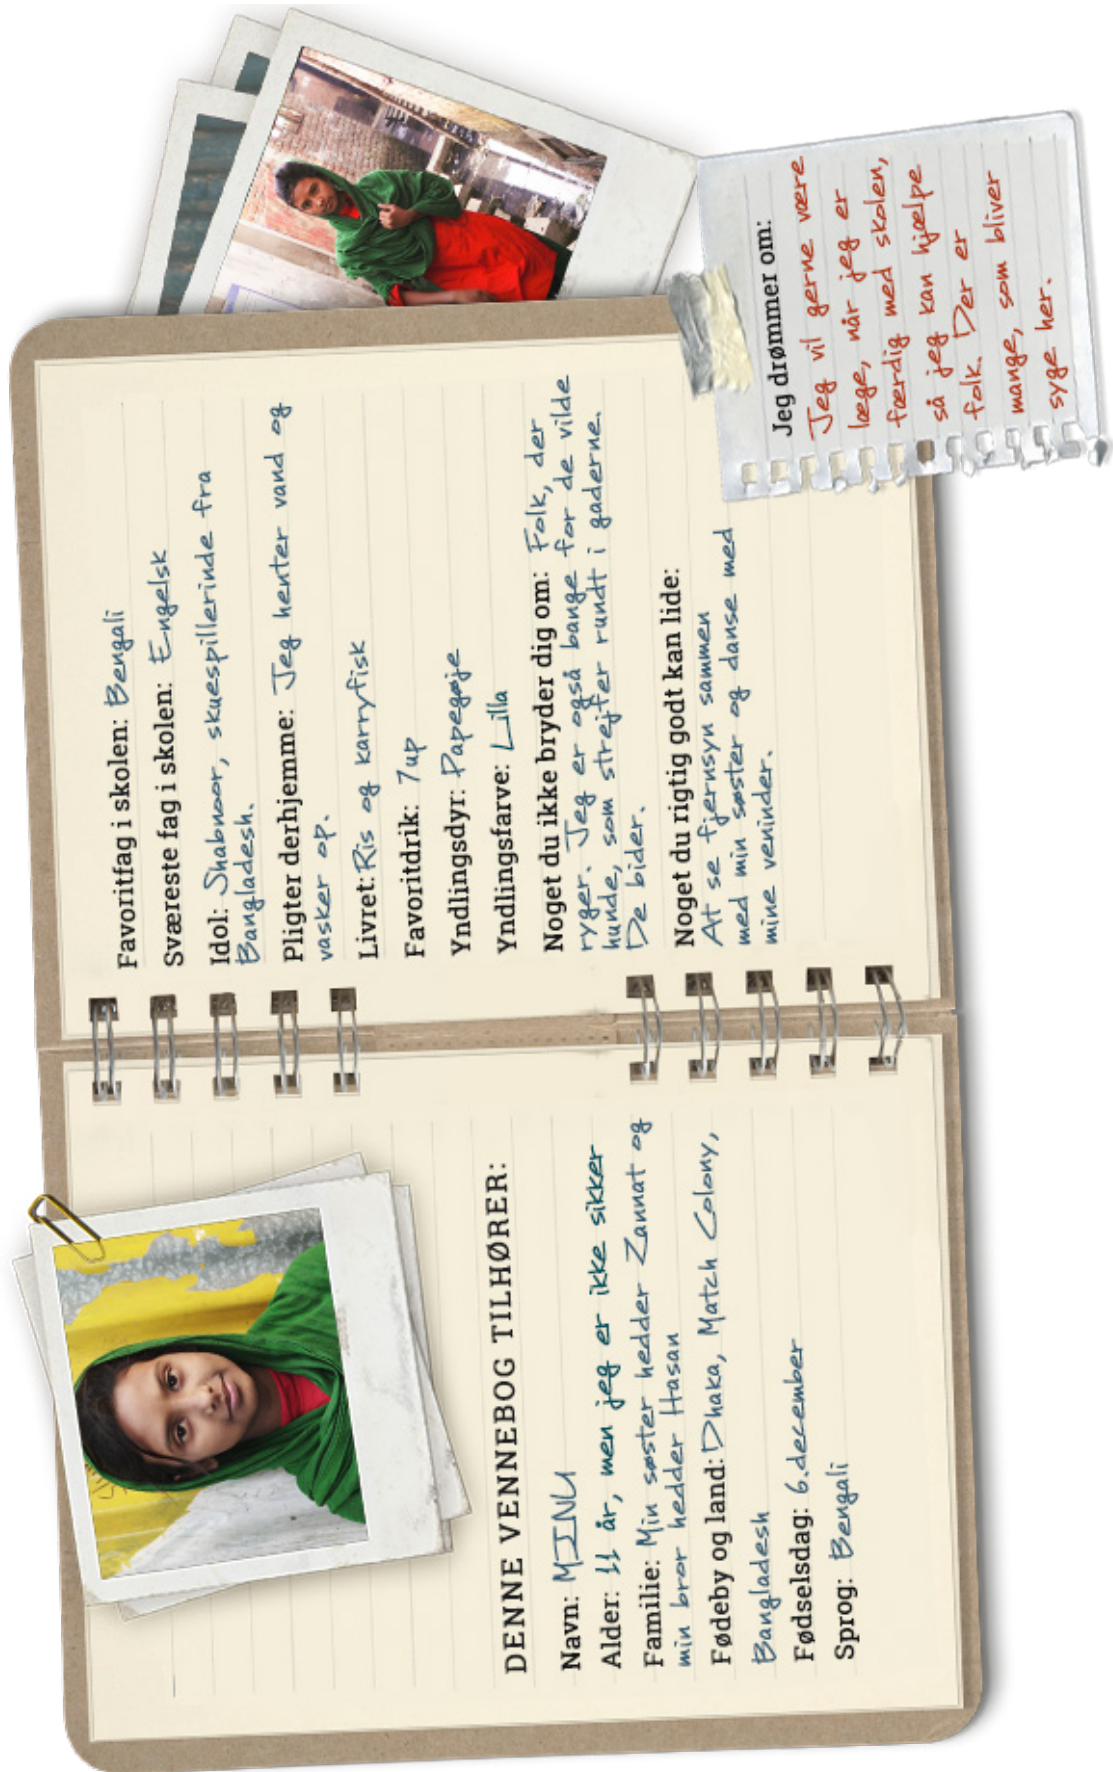 DENNE VENNEBOG TILHØRER:
Navn: MINU
Alder: 11 år, men jeg er ikke sikker
Familie: Min søster hedder Zannat og
min bror hedder Hasan
Fødeby og land: Dhaka, Match Colony,
Bangladesh
Fødselsdag: 6.december
Sprog: Bengali
Favoritfag i skolen: Bengali
Sværeste fag i skolen: Engelsk
Idol: Shabnoor, skuespillerinde fra
Bangladesh.
Pligter derhjemme: Jeg henter vand og
vasker op.
Livret: Ris og karryfisk
Favoritdrik: 7up
Yndlingsdyr: Papegøje
Yndlingsfarve: Lilla
Noget du ikke bryder dig om: Folk, der
ryger. Jeg er også bange for de vilde
hunde, som strejfer rundt i gaderne.
De bider.
Noget du rigtig godt kan lide:
At se fjernsyn sammen
med min søster og danse med
mine veninder.
Jeg drømmer om:
Jeg vil gerne være
læge, når jeg er
færdig med skolen,
så jeg kan hjælpe
folk. Der er
mange, som bliver
syge her.